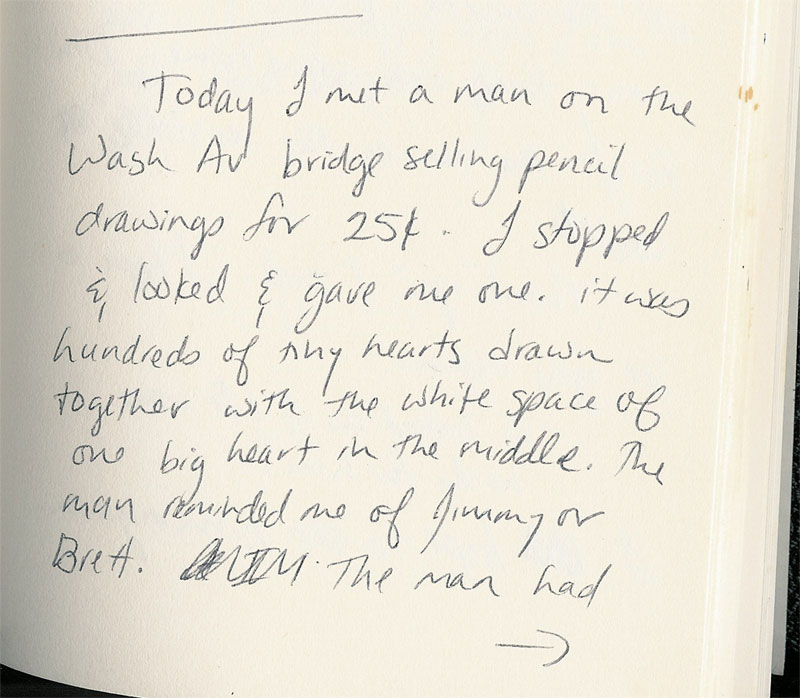 Today I met a man on the
Wash Av bridge selling pencil
drawings for 25¢. I stopped
& looked & gave me one. it was
hundreds of tiny hearts drawn
together with the white space of
one big heart in the middle. The
man reminded me of Jimmy or
Brett. The man had
→